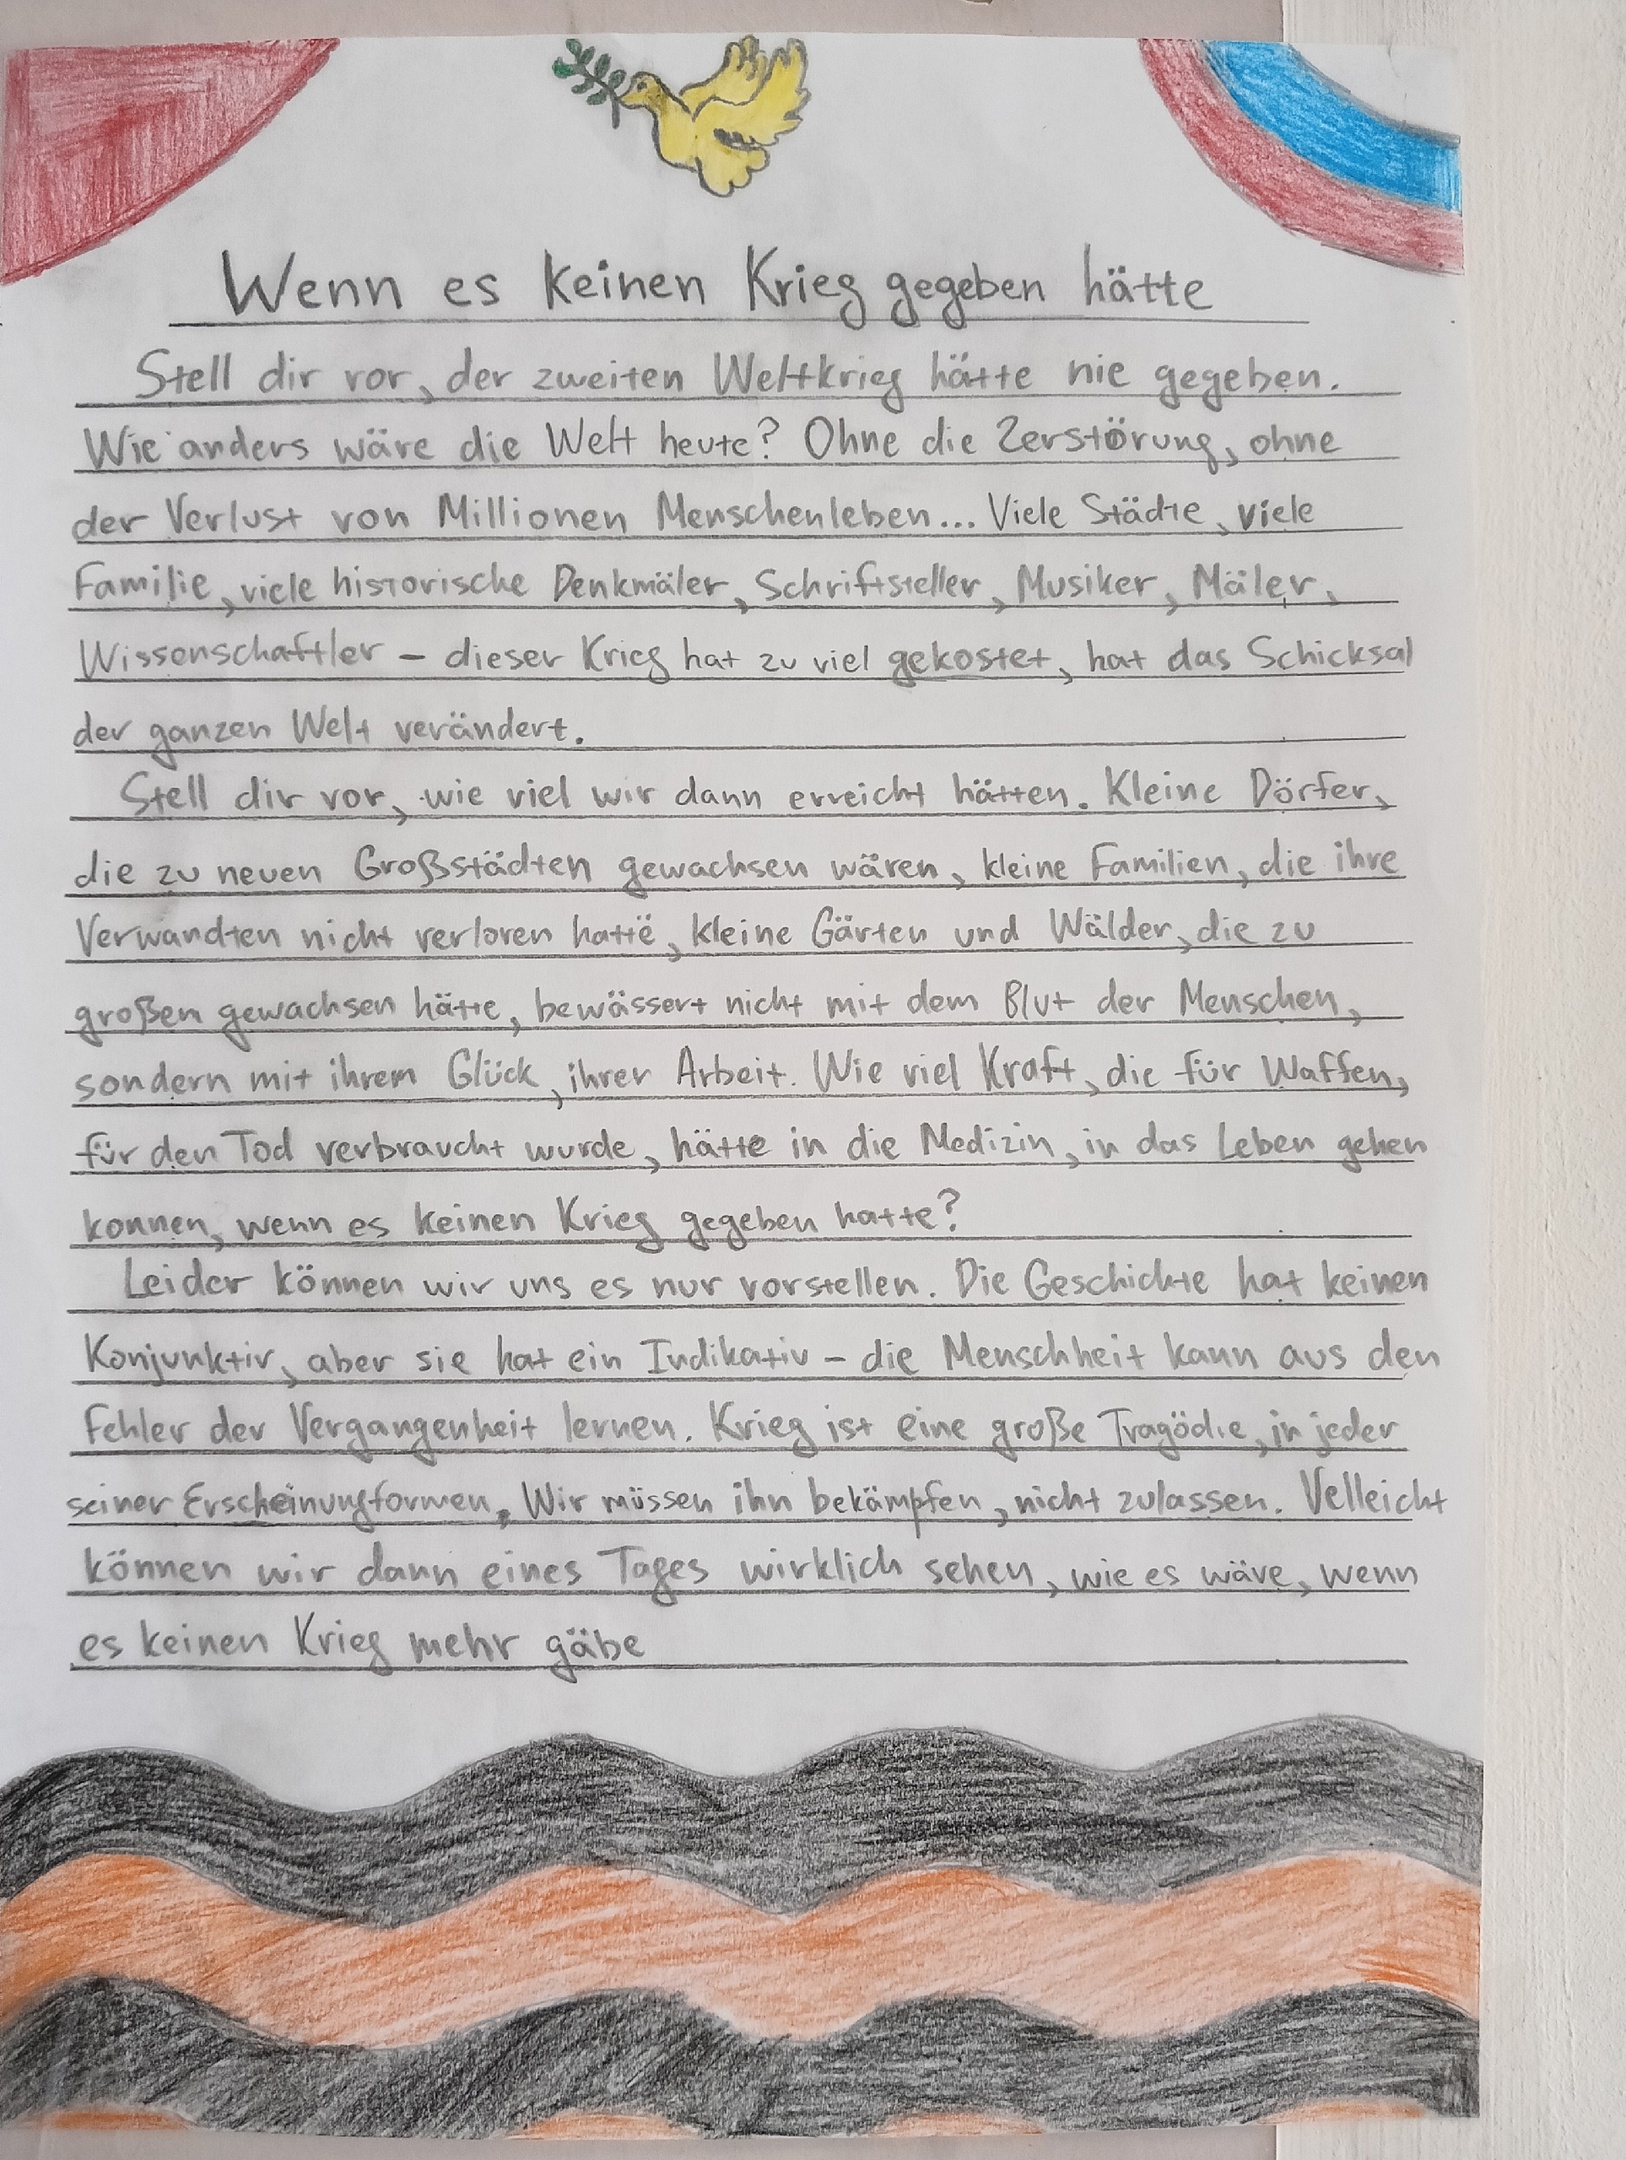 Wenn es keinen Krieg gegeben hätte
Stell dir vor, der zweiten Weltkrieg hätte nie gegeben.
Wie anders wäre die Welt heute? Ohne die Zerstörung, ohne
der Verlust von Millionen Menschenleben... Viele Städte, viele
Familie, viele historische Denkmäler, Schriftsteller, Musiker, Mäler,
Wissenschaftler – dieser Krieg hat zu viel gekostet, hat das Schicksal
der ganzen Welt verändert.
Stell dir vor, wie viel wir dann erreicht hätten. Kleine Dörfer,
die zu neuen Großstädten gewachsen wären, kleine Familien, die ihre
Verwandten nicht verloren hattë, kleine Gärten und Wälder, die zu
großen gewachsen hätte, bewässert nicht mit dem Blut der Menschen,
sondern mit ihrem Glück, ihrer Arbeit. Wie viel Kraft, die für Waffen,
für den Tod verbraucht wurde, hätte in die Medizin, in das Leben gehen
konnen, wenn es keinen Krieg gegeben hatte?
Leider können wir uns es nur vorstellen. Die Geschichte hat keinen
Konjunktiv, aber sie hat ein Indikativ – die Menschheit kann aus den
Fehler der Vergangenheit lernen. Krieg ist eine große Tragödie, in jeder
seiner Erscheinungformen. Wir müssen ihn bekämpfen, nicht zulassen. Velleicht
können wir dann eines Tages wirklich sehen, wie es wäre, wenn
es keinen Krieg mehr gäbe